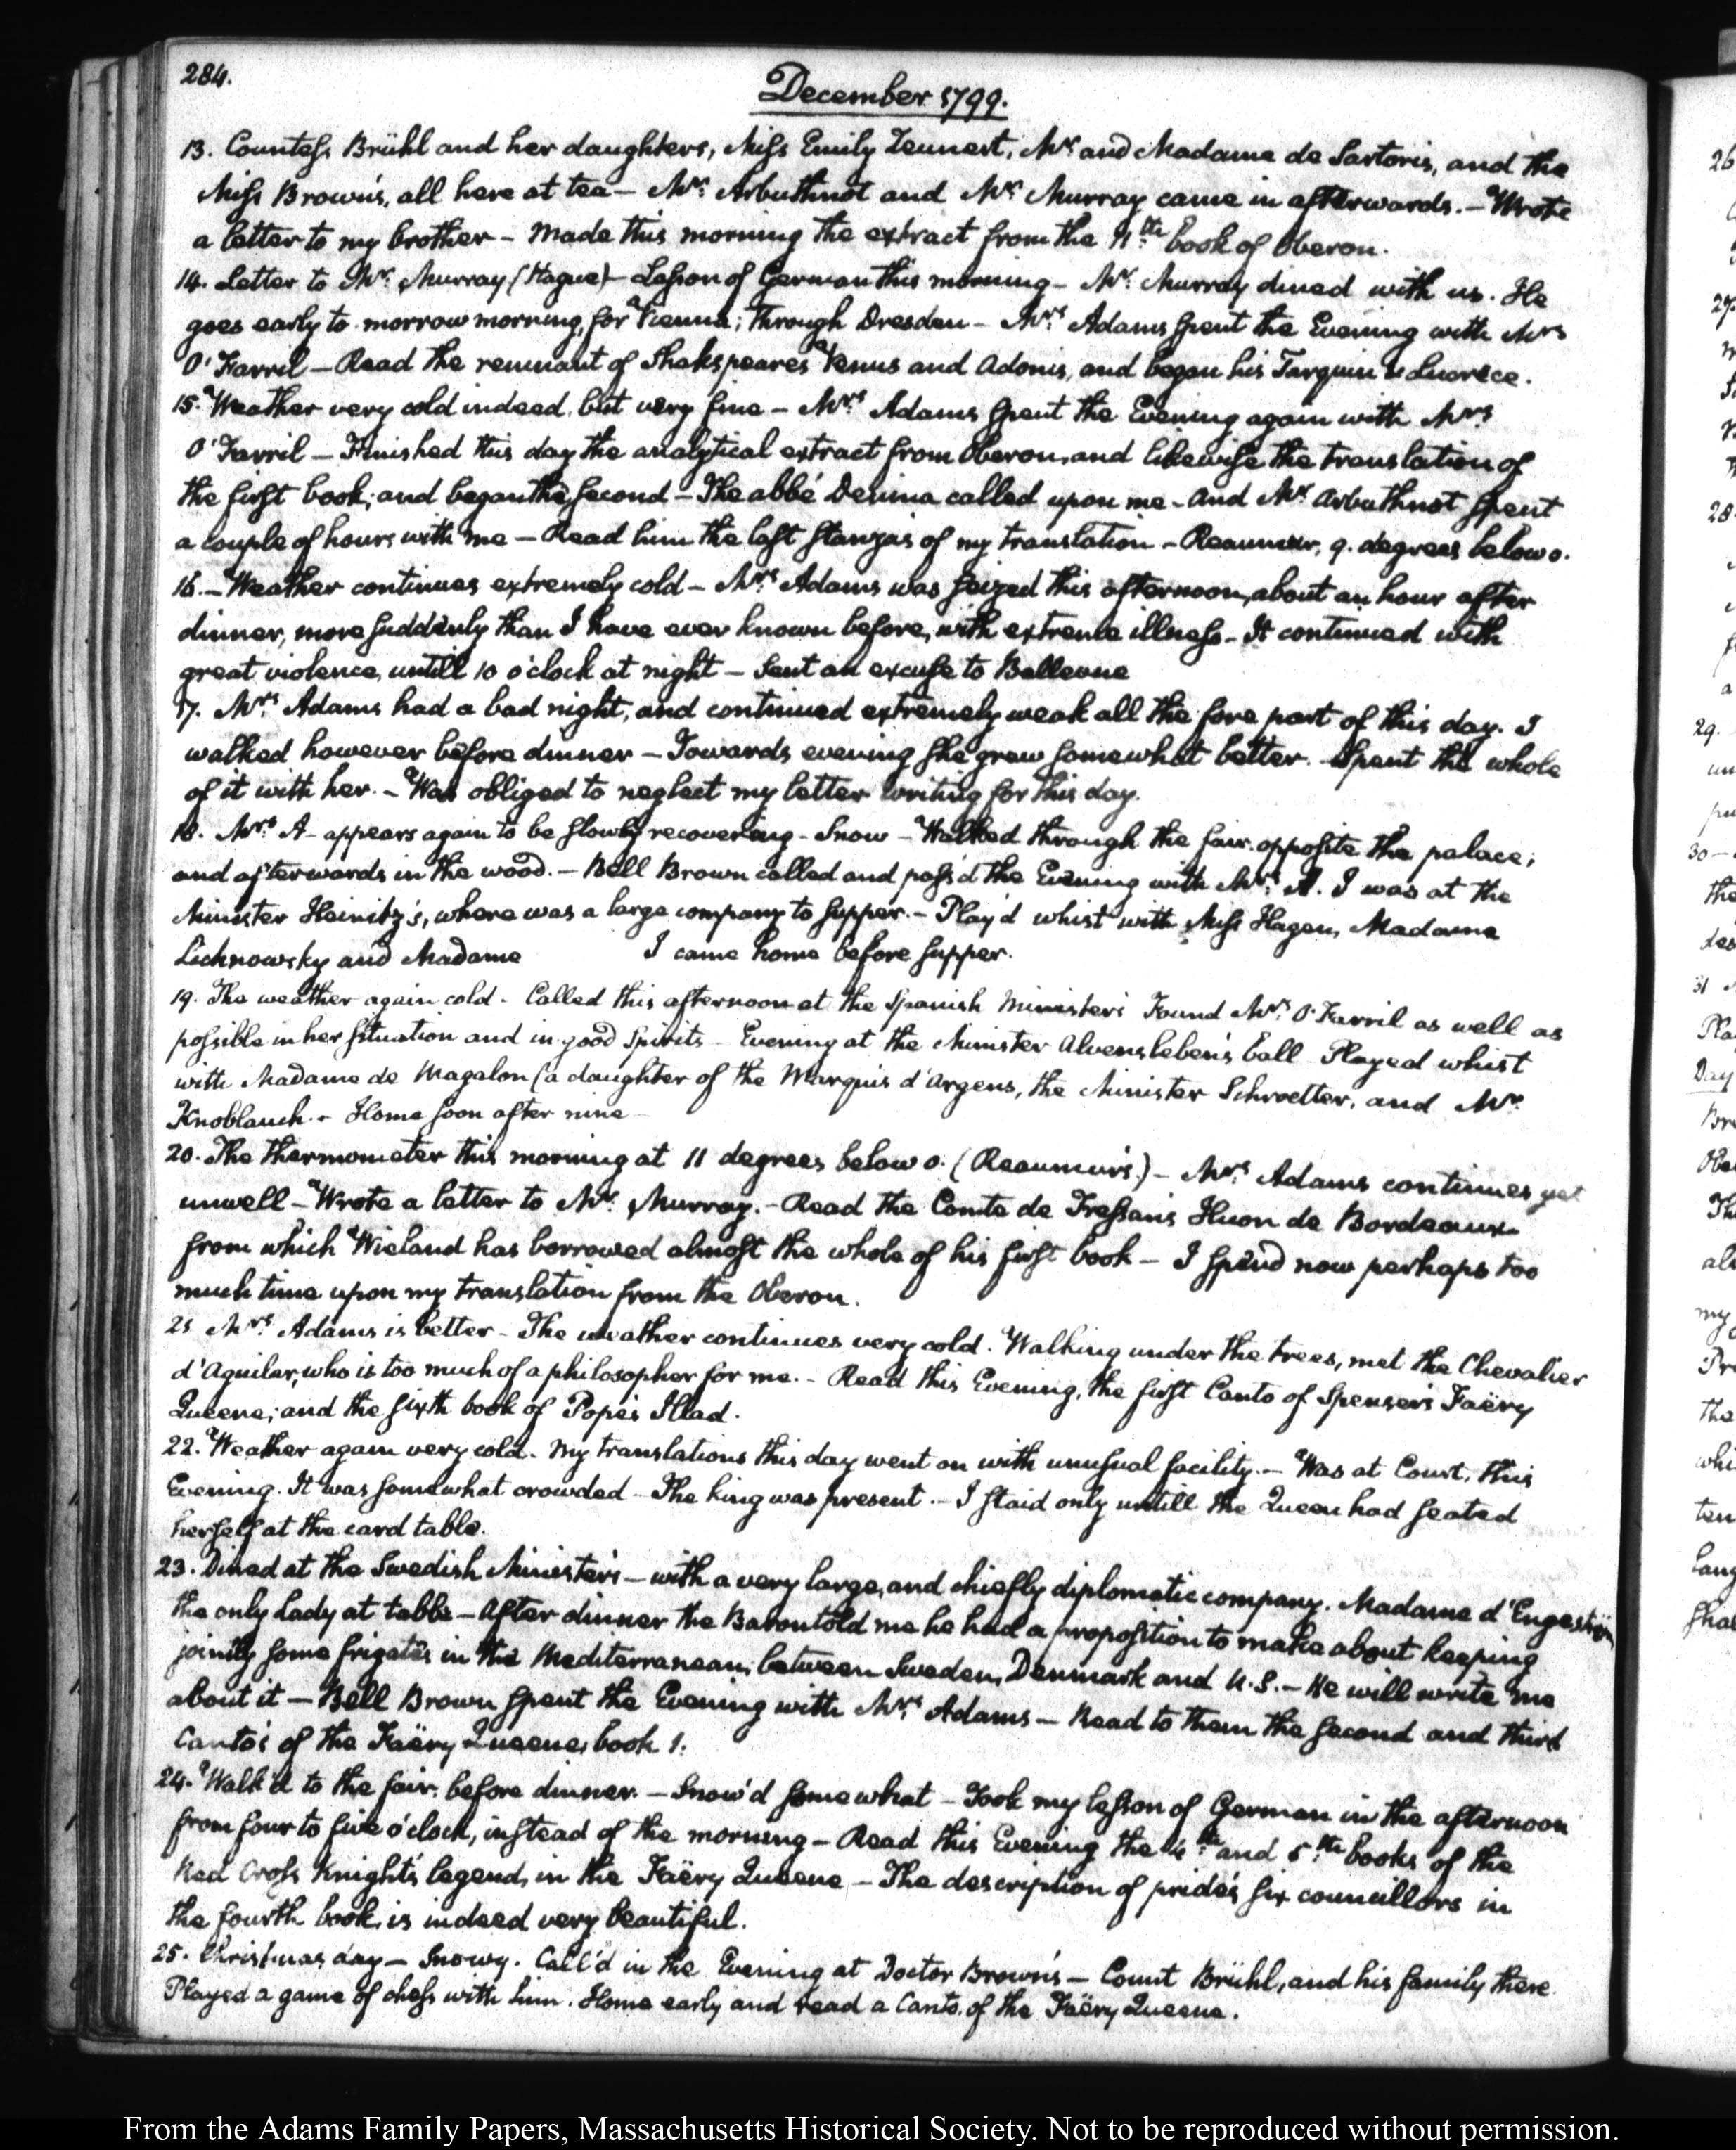 284.
December 1799.
13. Countess Brühl and her daughters, Miss Emily Zeunert, Mr. and Madame de Sartoris, and the
Miss Brown's, all here at tea — Mr. Arbuthnot and Mr. Murray came in afterwards. — Wrote
a letter to my brother — Made this morning the extract from the 11th book of Oberon.
14. Letter to Mr. Murray (Hague) — Lesson of German this morning — Mr. Murray dined with us. He
goes early to morrow morning, for Vienna; through Dresden — Mrs. Adams spent the Evening with Mrs
O'Farril — Read the remnant of Shakspeares Venus and Adonis, and began his Tarquin & Lucrece.
15. Weather very cold indeed, but very fine — Mrs. Adams spent the Evening again with Mrs
O'Farril — Finished this day the analytical extract from Oberon, and likewise the translation of
the first book; and began the second — The abbé Denina called upon me — And Mr. Arbuthnot spent
a couple of hours with me — Read him the last stanzas of my translation — Reaumur, 9. degrees below 0.
16. — Weather continues extremely cold — Mrs. Adams was seized this afternoon, about an hour after
dinner, more suddenly than I have ever known before, with extreme illness — It continued with
great violence, untill 10 o'clock at night — Sent an excuse to Bellevue
17. Mrs. Adams had a bad night, and continued extremely weak all the fore part of this day. I
walked however before dinner — Towards evening she grew somewhat better. Spent the whole
of it with her. — Was obliged to neglect my letter writing for this day.
18. Mrs. A— appears again to be slowly recovering — Snow — Walked through the fair opposite the palace;
and afterwards in the wood. — Bell Brown called and pass'd the Evening with Mrs. A. I was at the
Minister Heinitz's, where was a large company to supper. — Play'd whist with Miss Hagen, Madame
Lichnowsky and Madame I came home before supper.
19. The weather again cold. Called this afternoon at the Spanish Minister's Found Mrs. O'Farril as well as
possible in her situation and in good spirits — Evening at the Minister Alvensleben's ball Played whist
with Madame de Magalon (a daughter of the Marquis d'Argens, the Minister Schroetter, and Mr.
Knoblauch. — Home soon after nine —
20. The thermometer this morning at 11 degrees below 0. (Reaumur's.) — Mrs. Adams continues yet
unwell — Wrote a letter to Mr. Murray. — Read the Comte de Tressan's Huon de Bordeaux
from which Wieland has borrowed almost the whole of his first book — I spend now perhaps too
much time upon my translation from the Oberon.
21 Mrs. Adams is better — The weather continues very cold. Walking under the trees, met the Chevalier
d'Aguilar, who is too much of a philosopher for me. — Read this Evening, the first Canto of Spenser's Faëry
Queene; and the sixth book of Pope's Iliad.
22. Weather again very cold. My translations this day went on with unusual facility. — Was at Court, this
Evening. It was somewhat crowded — The king was present. — I staid only untill the Queen had seated
herself at the card table.
23. Dined at the Swedish Minister's — with a very large, and chiefly diplomatic company. Madame d'Engeström
the only lady at table — After dinner the Baron told me he had a proposition to make about keeping
jointly some frigates in the Mediterranean, between Sweden, Denmark and U.S. — He will write me
about it — Bell Brown spent the Evening with Mrs. Adams — Read to them the second and third
Canto's of the Faëry Queene, book 1.
24. Walk'd to the fair before dinner. — Snow'd somewhat — Took my lesson of German in the afternoon
from four to five o'clock, instead of the morning — Read this Evening the 4th and 5th books of the
Red Cross Knight's legend, in the Faëry Queene — The description of pride's six councillors in
the fourth book, is indeed very beautiful.
25. Christmas day — Snowy. Call'd in the Evening at Doctor Brown's — Count Brühl, and his family there.
Played a game of chess with him. Home early and read a Canto of the Faëry Queene.
From the Adams Family Papers, Massachusetts Historical Society. Not to be reproduced without permission.